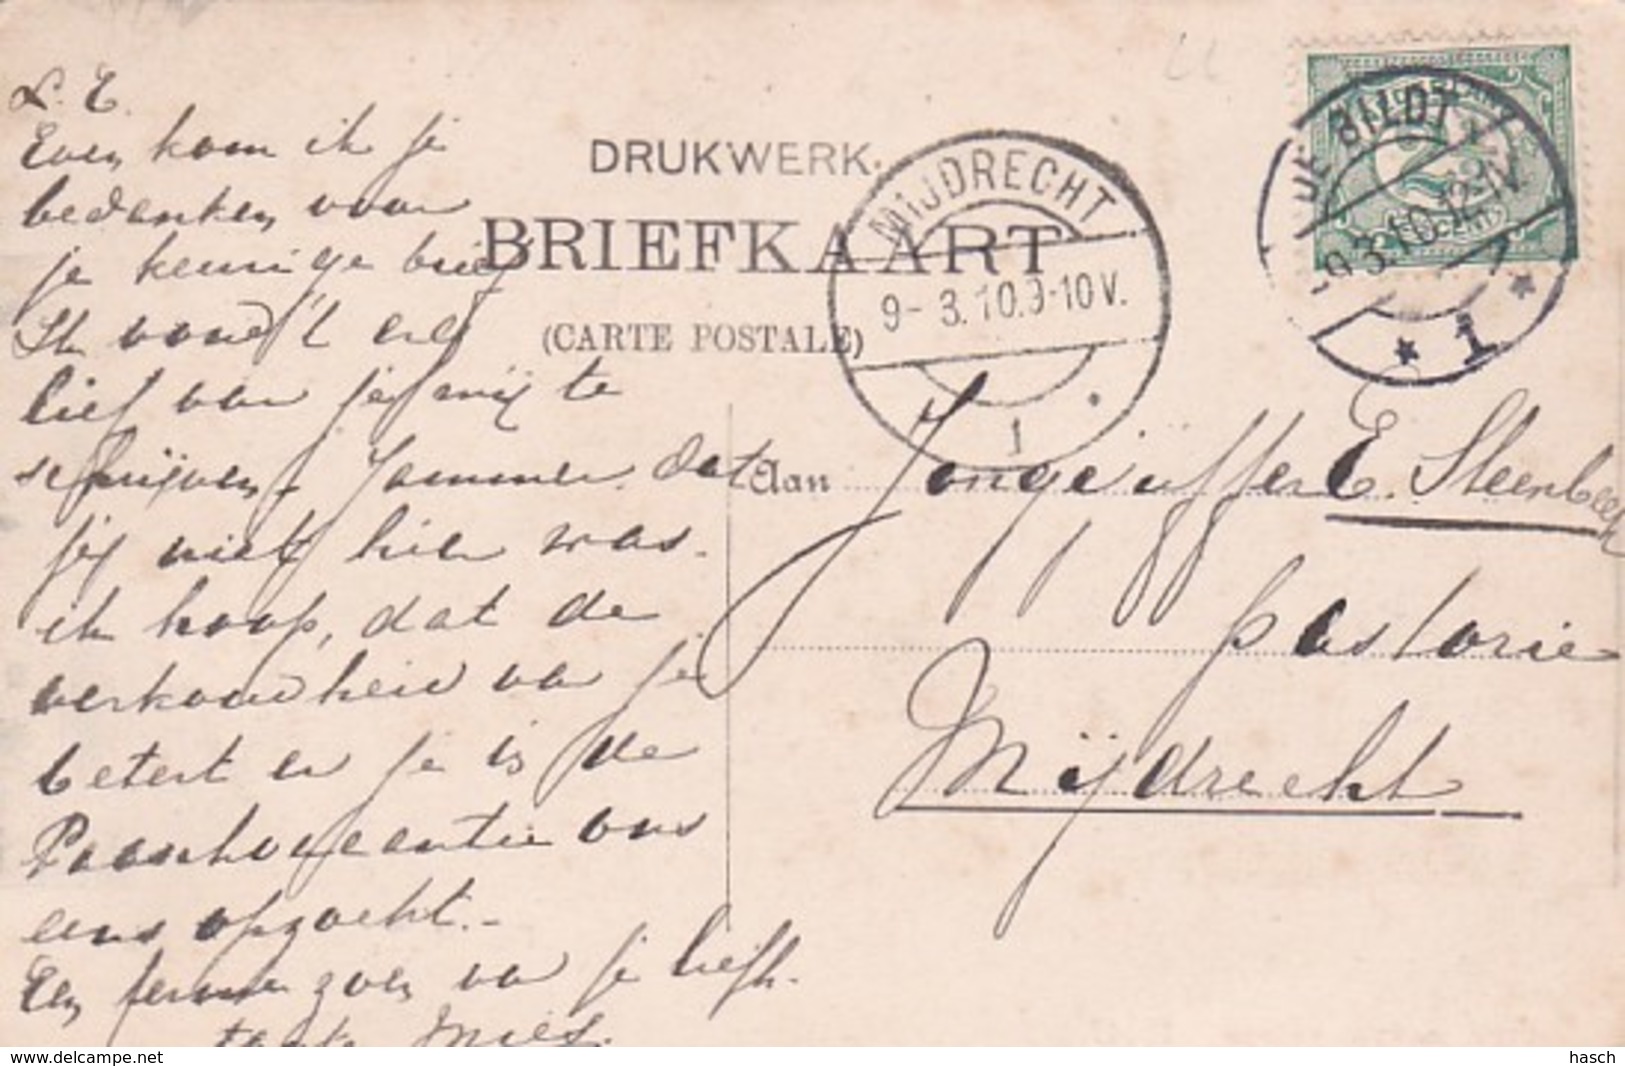 L. E.
Even kom ik je
bedanken voor
je keurige brief
Ik vond 't erg
lief van jij mij te
schrijven. Jammer dat
jij niet hier was.
ik hoop, dat de
verkoudheid van je
betert en je in de
Paaschvacantie ons
eens opzoekt.-
Een ferme zoen van je liefh.
tante Mies.
DRUKWERK.
BRIEFKAART
(CARTE POSTALE)
MIJDRECHT
9-3.10.9-10V.
1
DE BILDT
-9.3.10.12-1V.
1
Aan Jongejuffer E. Steenbeek
pastorie
Mijdrecht
www.delcampe.net
hasch